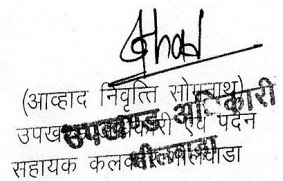 (आव्हाद निवृत्ति सोमनाथ)
उपखण्ड अधिकारी एवं पदेन
सहायक कलक्टर भीलवाडा
उपखण्ड अधिकारी
भीलवाडा